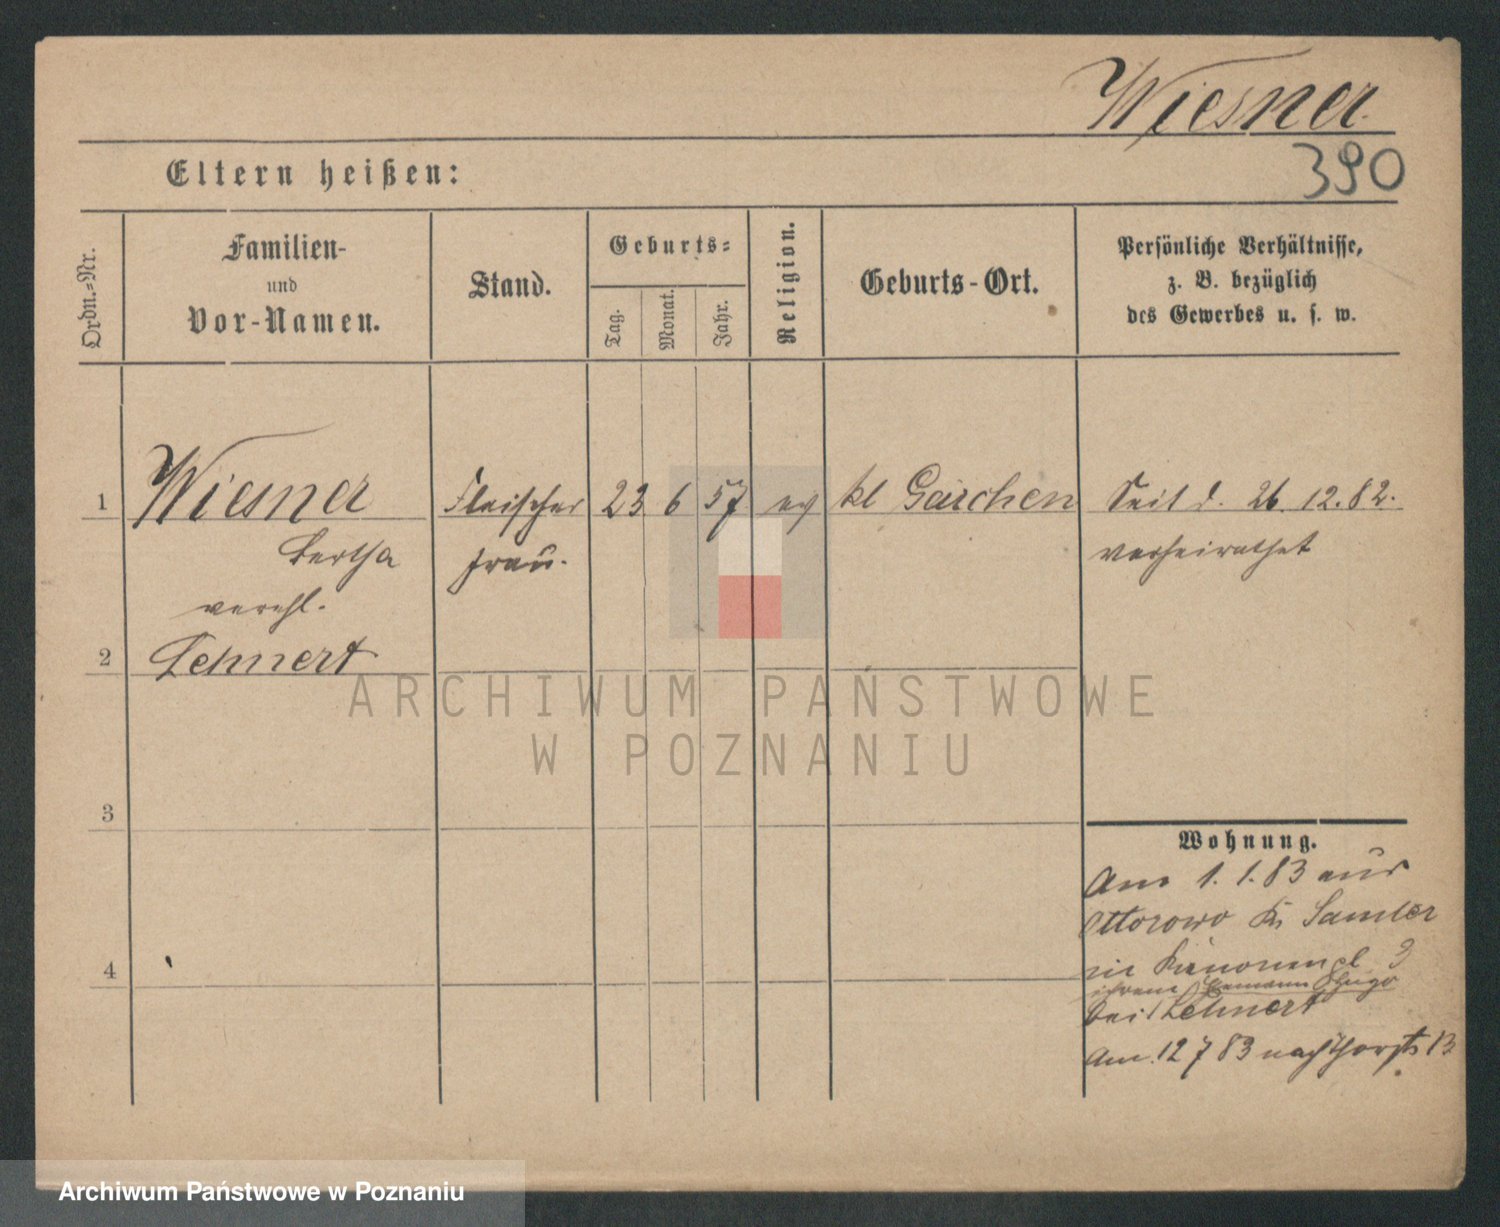 Wiesner
390
Eltern heißen:
Ordn.-Nr.
Familien-
und
Vor-Namen.
Stand.
Geburts-
Tag.
Monat.
Jahr.
Religion.
Geburts-Ort.
Persönliche Verhältnisse,
z. B. bezüglich
des Gewerbes u. s. w.
1 Wiesner Fleischer 23 6 57 ev kl Gairchen Seit d. 26. 12. 82.
Bertha frau. verheirathet
verehl.
2 Lehnert
ARCHIWUM PAŃSTWOWE
W POZNANIU
3
Wohnung.
Am 1. 1. 83 aus
Ottorowo Kr Samter
4
ihrem Ehemann Hugo
bei Lehnert
Am. 12 7 83 nach
Archiwum Państwowe w Poznaniu